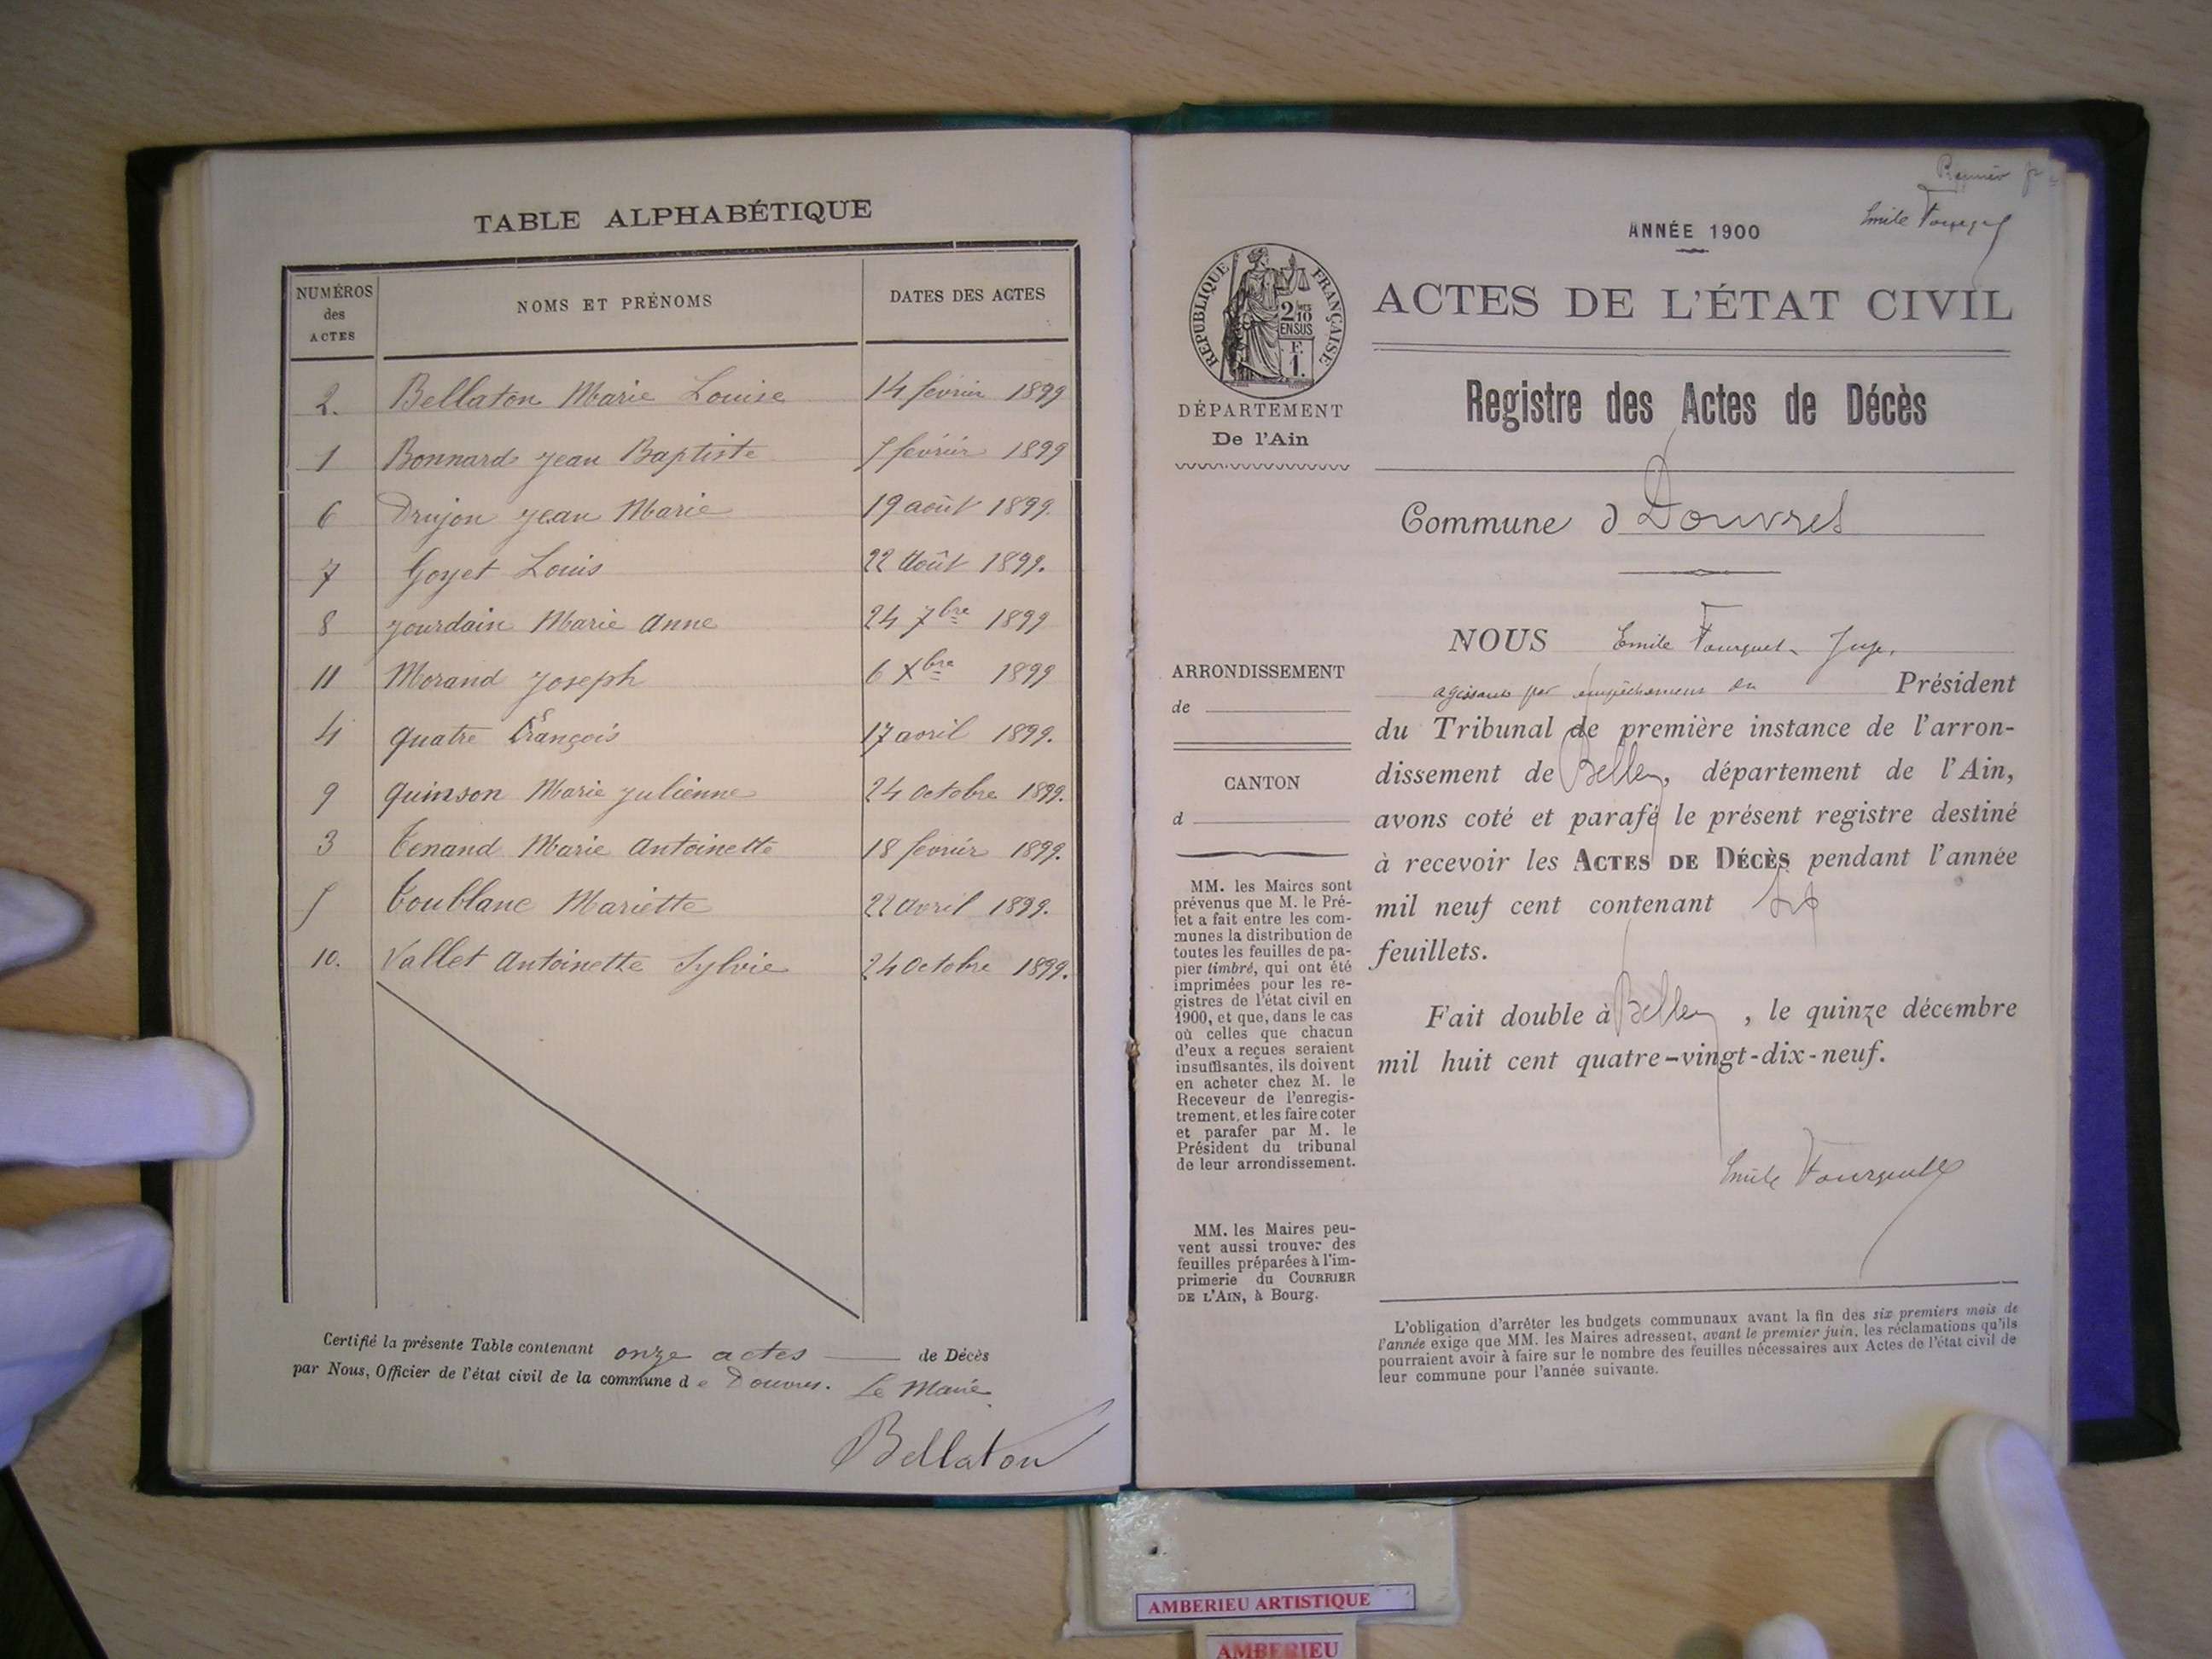 TABLE ALPHABÉTIQUE
NUMÉROS des ACTES
NOMS ET PRÉNOMS
DATES DES ACTES
2. Bellaton Marie Louise 14 février 1899
1 Bonnard Jean Baptiste 7 février 1899
6 Drujon Jean Marie 19 août 1899.
7 Goyet Louis 22 Août 1899.
8 Jourdain Marie Anne 24 7bre 1899
11 Morand Joseph 6 Xbre 1899
4 Quatre François 17 avril 1899.
9 Quinson Marie Julienne 24 octobre 1899.
3 Tenand Marie Antoinette 18 février 1899.
5 Toublanc Mariette 22 avril 1899.
10. Vallet Antoinette Sylvie 24 Octobre 1899.
Certifié la présente Table contenant onze actes de Décès
par Nous, Officier de l'état civil de la commune de Douvres. Le Maire
Bellaton
Premier
Emile Fourquet
ANNÉE 1900
RÉPUBLIQUE FRANÇAISE
2/10 EN SUS
F. 1.
DÉPARTEMENT
De l'Ain
ACTES DE L'ÉTAT CIVIL
Registre des Actes de Décès
Commune d Douvres
ARRONDISSEMENT
de
CANTON
d
MM. les Maires sont
prévenus que M. le Pré-
fet a fait entre les com-
munes la distribution de
toutes les feuilles de pa-
pier timbré, qui ont été
imprimées pour les re-
gistres de l'état civil en
1900, et que, dans le cas
où celles que chacun
d'eux a reçues seraient
insuffisantes, ils doivent
en acheter chez M. le
Receveur de l'enregis-
trement, et les faire coter
et parafer par M. le
Président du tribunal
de leur arrondissement.
MM. les Maires peu-
vent aussi trouver des
feuilles préparées à l'im-
primerie du COURRIER
DE L'AIN, à Bourg.
NOUS Emile Fourquet, Juge,
agissant par empêchement du Président
du Tribunal de première instance de l'arron-
dissement de Belley, département de l'Ain,
avons coté et parafé le présent registre destiné
à recevoir les ACTES DE DÉCÈS pendant l'année
mil neuf cent contenant
feuillets.
Fait double à Belley, le quinze décembre
mil huit cent quatre-vingt-dix-neuf.
Emile Fourquet
L'obligation d'arrêter les budgets communaux avant la fin des six premiers mois de
l'année exige que MM. les Maires adressent, avant le premier juin, les réclamations qu'ils
pourraient avoir à faire sur le nombre des feuilles nécessaires aux Actes de l'état civil de
leur commune pour l'année suivante.
AMBERIEU ARTISTIQUE
AMBERIEU